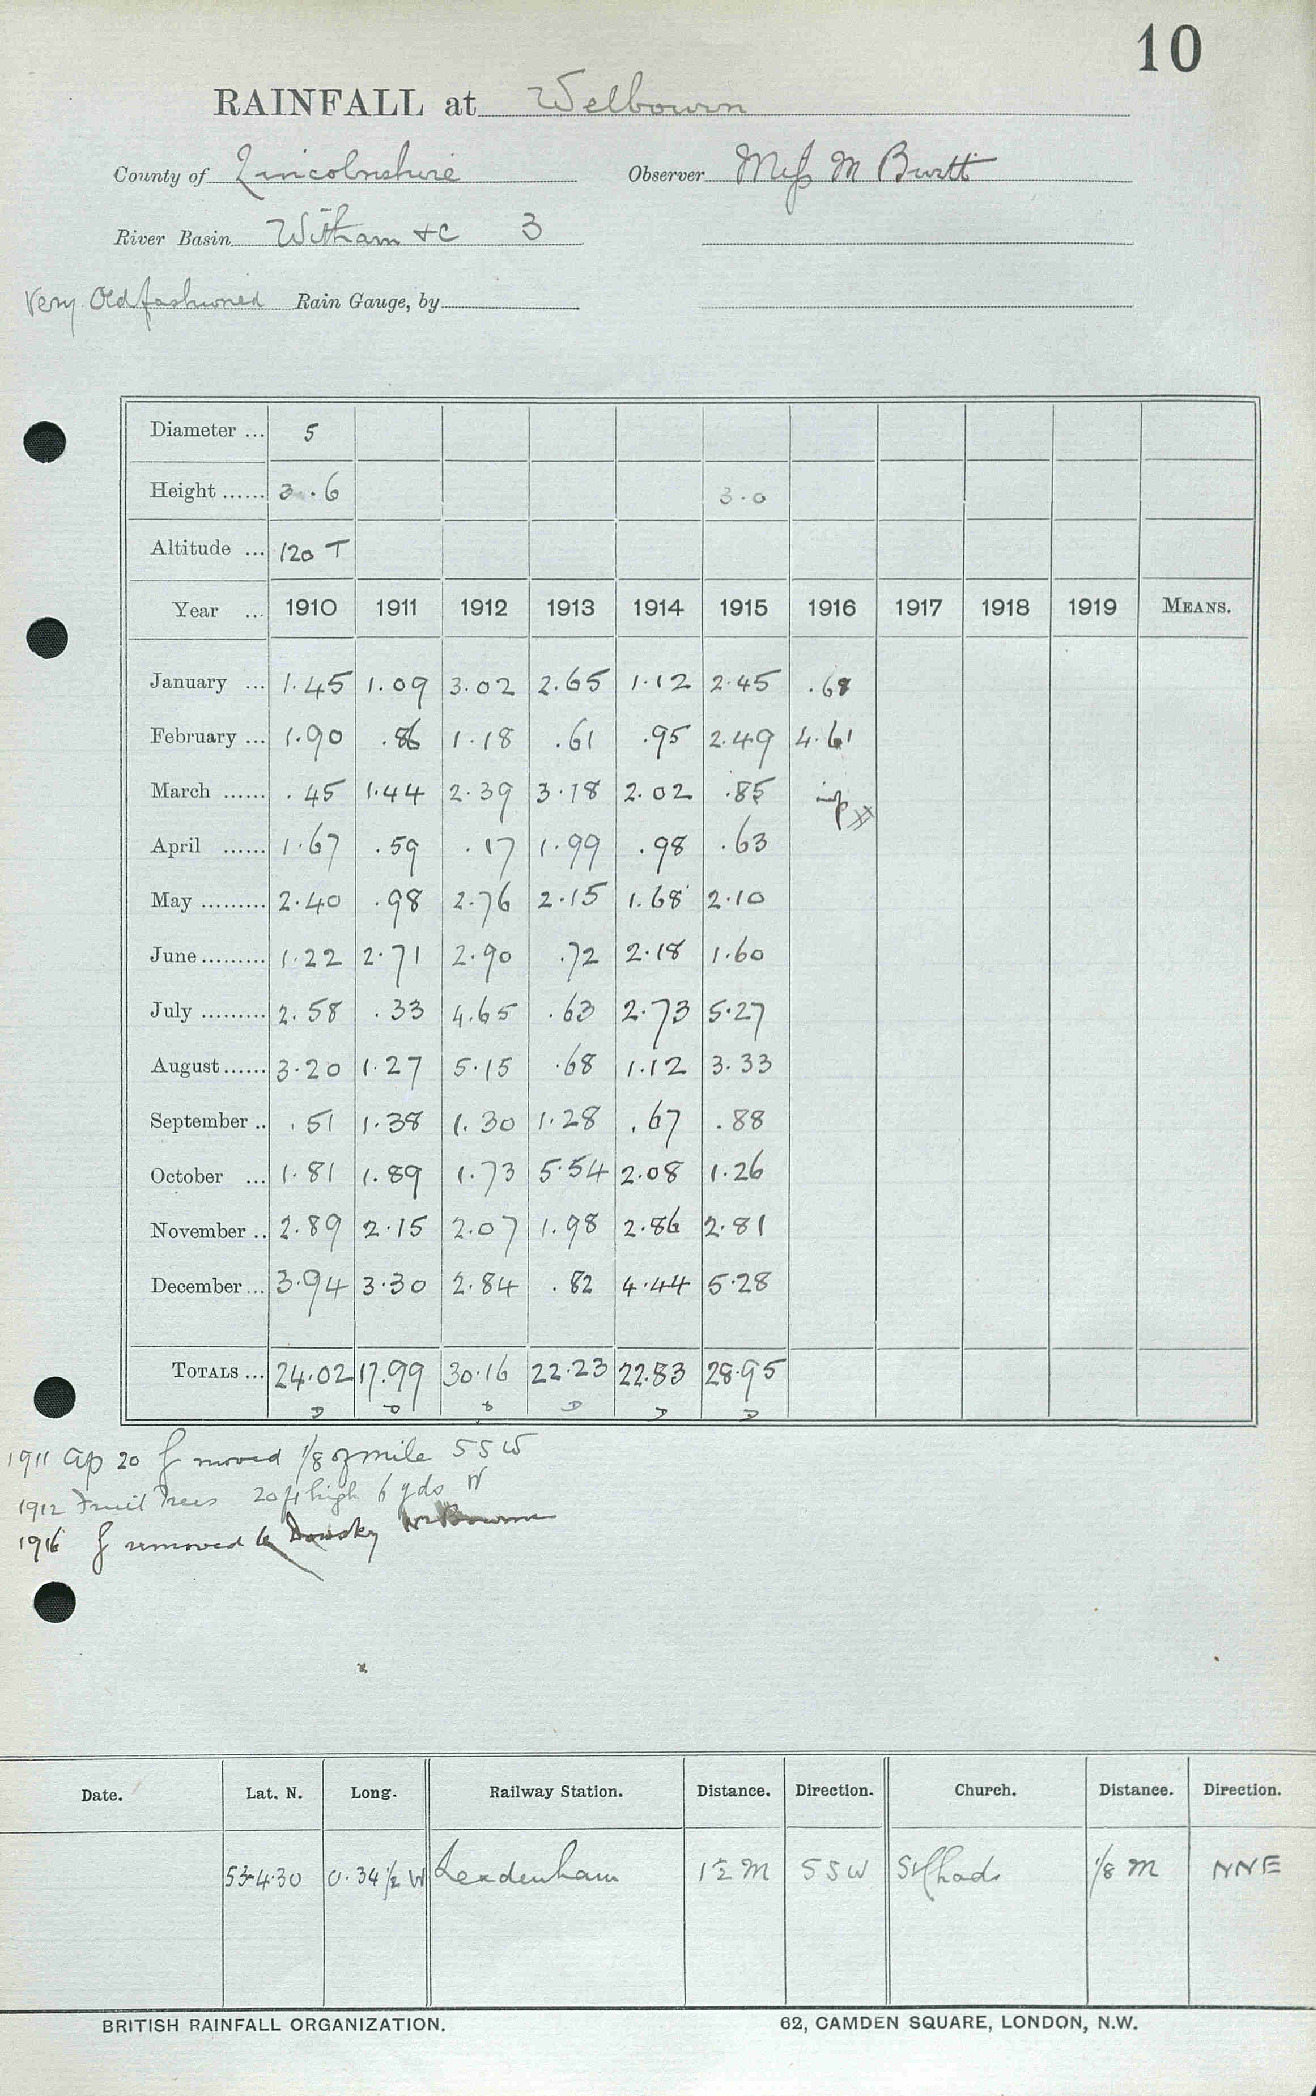 10
RAINFALL at Welbourn
County of Lincolnshire Observer Miss M Burtt
River Basin Witham &c 3
Very Old fashioned Rain Gauge, by
Diameter ... 5
Height ...... 3.6 3.0
Altitude ... 120 T
Year ... 1910 1911 1912 1913 1914 1915 1916 1917 1918 1919 MEANS.
January ... 1.45 1.09 3.02 2.65 1.12 2.45 .68
February ... 1.90 .86 1.18 .61 .95 2.49 4.61
March ...... .45 1.44 2.39 3.18 2.02 .85
April ...... 1.67 .59 .17 1.99 .98 .63
May ......... 2.40 .98 2.76 2.15 1.68 2.10
June ......... 1.22 2.71 2.90 .72 2.18 1.60
July ......... 2.58 .33 4.65 .63 2.73 5.27
August ...... 3.20 1.27 5.15 .68 1.12 3.33
September .. .51 1.38 1.30 1.28 .67 .88
October ... 1.81 1.89 1.73 5.54 2.08 1.26
November .. 2.89 2.15 2.07 1.98 2.86 2.81
December ... 3.94 3.30 2.84 .82 4.44 5.28
TOTALS ... 24.02 17.99 30.16 22.23 22.83 28.95
1911 Ap 20 g moved 1/8 of mile SSW
1912 Fruit Trees 20 ft high 6 yds W
1916 g removed to
Date. Lat. N. Long. Railway Station. Distance. Direction. Church. Distance. Direction.
53.4.30 0.34½ W Leadenham 1½ M SSW St Chads 1/8 M NNE
BRITISH RAINFALL ORGANIZATION. 62, CAMDEN SQUARE, LONDON, N.W.